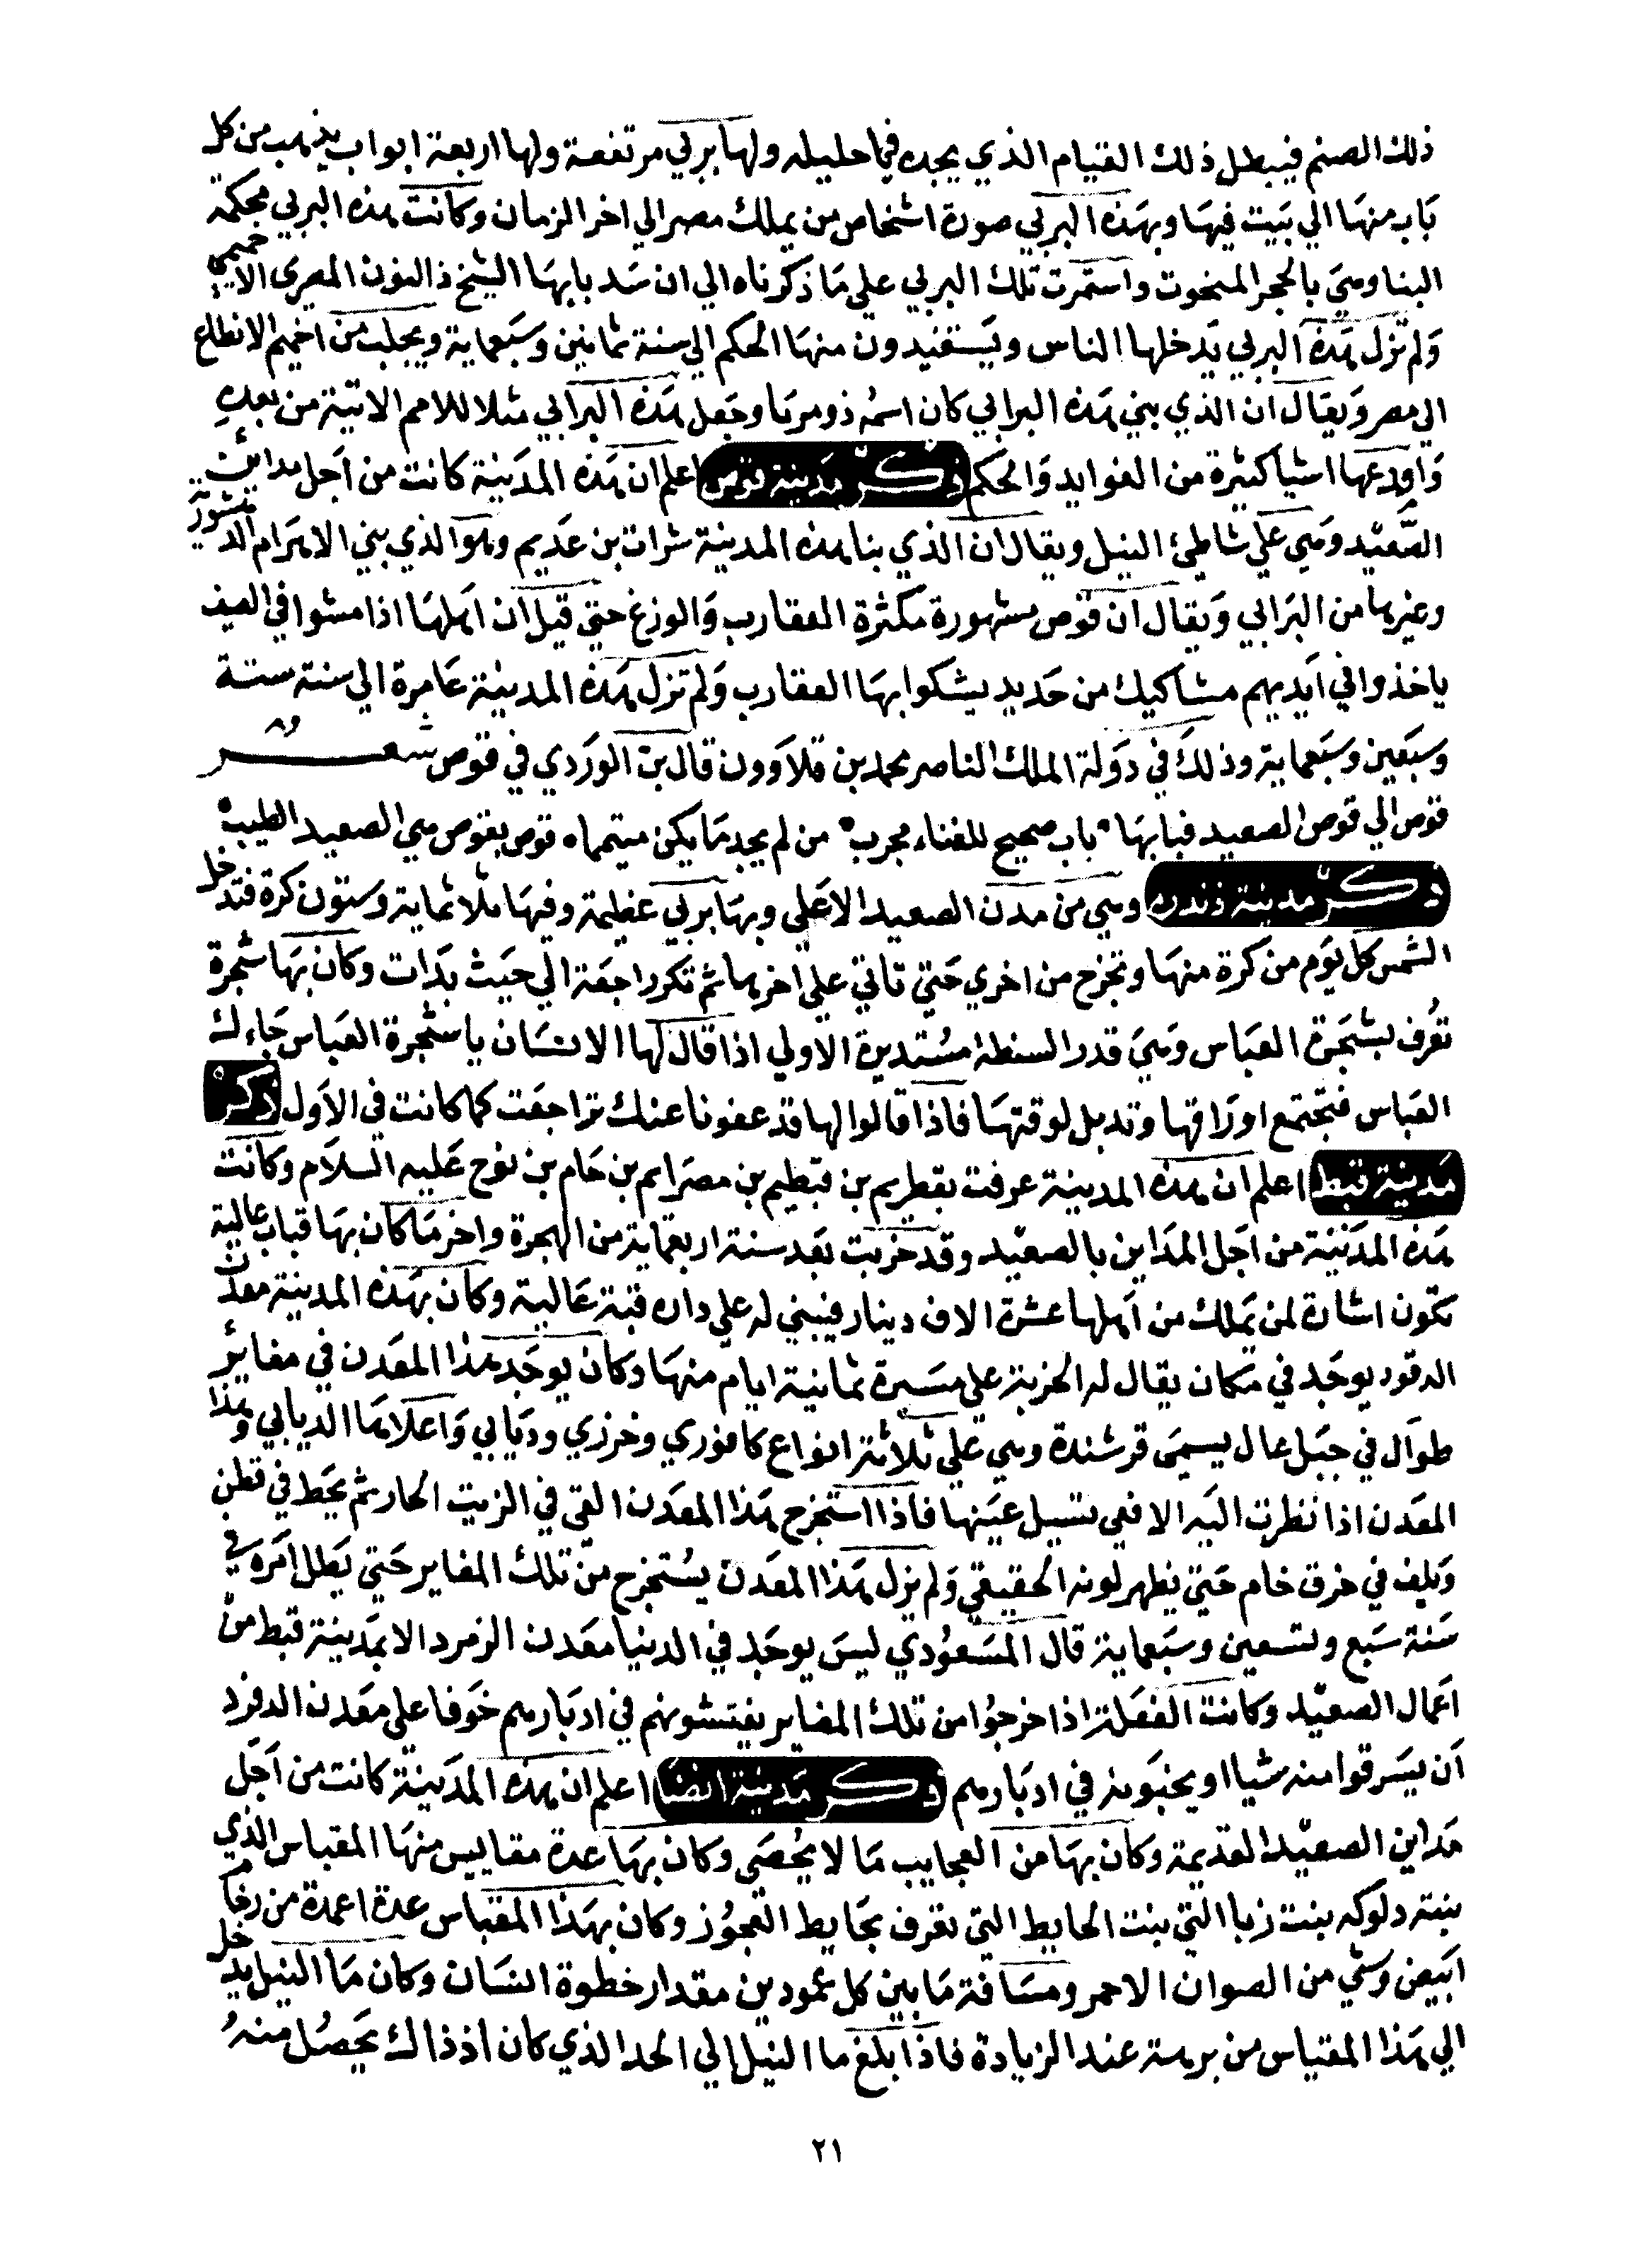 ذلك الصنم فيبطل ذلك القيام الذي يجده في احليله ولها بربي مرتفعة ولها اربعة ابواب يذهب من كل
باب منها الي بيت فيها وبهذه البربي صورة اشخاص من يملك مصر الي اخر الزمان وكانت هذه البربي محكمة
البنا وهي بالحجر المنحوت واستمرت تلك البربي علي ما ذكرناه الي ان سد بابها الشيخ ذا النون المصري الاخميمي
ولم تزل هذه البربي يدخلها الناس ويستفيدون منها الحكم الي سنة ثمانين وسبعماية ويجلب من اخميم الانطاع
الي مصر ويقال ان الذي بني هذه البرابي كان اسمه ذومريا وجعل هذه البرابي مثلا للامم الاتية من بعده
واودعها اشيا كثيرة من الفوايد والحكم ذكر مدينة قوص اعلم ان هذه المدينة كانت من اجل مداين
الصعيد وهي علي شاطئ النيل ويقال ان الذي بنا هذه المدينة شرات بن عديم وهو الذي بني الاهرام الدهشورية
وغيرها من البرابي ويقال ان قوص مشهورة بكثرة العقارب والوزغ حتي قيل ان اهلها اذا مشوا في الصيف
ياخذوا في ايديهم مشاكيك من حديد يشكوا بها العقارب ولم تزل هذه المدينة عامرة الي سنة ستة
وسبعين وسبعماية وذلك في دولة الملك الناصر محمد بن قلاوون قال بن الوردي في قوص شعر
قوص الي قوص الصعيد فبابها * باب صحيح للغناء مجرب * من لم يجد ما يكن متيمماه قوص بقوص هي الصعيد الطيب
ذكر مدينة دندره وهي من مدن الصعيد الاعلي وبها بربي عظيمة وفيها ثلاثماية وستون كرة فتدخل
الشمس كل يوم من كرة منها وتخرج من اخري حتي تاتي علي اخرها ثم تكر راجعة الي حيث بدات وكان بها شجرة
تعرف بشجرة العباس وهي قدر السنطة مستديرة الاولي اذا قال لها الانسان يا شجرة العباس جاءك
العباس فتجتمع اوراقها وتدبل لوقتها فاذا قالوا لها قد عفونا عنك تراجعت كما كانت في الاول ذكر
مدينة قبط اعلم ان هذه المدينة عرفت بقطريم بن قبطيم بن مصرايم بن حام بن نوح عليه السلام وكانت
هذه المدينة من اجل المداين بالصعيد وقد خربت بعد سنة اربعماية من الهجرة واخر ما كان بها قباب عالية
تكون اشارة لمن يملك من اهلها عشرة الاف دينار فيبني له علي داره قبة عالية وكان بهذه المدينة معدن
الدقود يوجد في مكان يقال له الخربة علي مسيرة ثمانية ايام منها وكان يوجد هذا المعدن في مغاير
طوال في جبل عال يسمي قرشندة وهي علي ثلاثة انواع كافوري وخرزي وديابي واعلاها الديابي وهذا
المعدن اذا نظرت اليه الافعي تسيل عينها فاذا استخرج هذا المعدن القي في الزيت الحار ثم يحط في قطن
ويلف في خرق خام حتي يظهر لونه الحقيقي ولم يزل هذا المعدن يستخرج من تلك المغاير حتي بطل امره في
سنة سبع وتسعين وسبعماية قال المسعودي ليس يوجد في الدنيا معدن الزمرد الا بمدينة قبط من
اعمال الصعيد وكانت الفعلة اذا خرجوا من تلك المغاير يفتشونهم في ادبارهم خوفا علي معدن الدقود
ان يسرقوا منه شيا او يخبونه في ادبارهم ذكر مدينة انصنا اعلم ان هذه المدينة كانت من اجل
مداين الصعيد القديمة وكان بها من العجايب ما لا يحصي وكان بها عدة مقاييس منها المقياس الذي
بنته دلوكه بنت زبا التي بنت الحايط التي تعرف بحايط العجوز وكان بهذا المقياس عدة اعمدة من رخام
ابيض وشي من الصوان الاحمر ومسافة ما بين كل عمودين مقدار خطوة انسان وكان ما النيل يدخل
الي هذا المقياس من بربة عند الزيادة فاذا بلغ ما النيل الي الحد الذي كان اذ ذاك يحصل منه
٢١